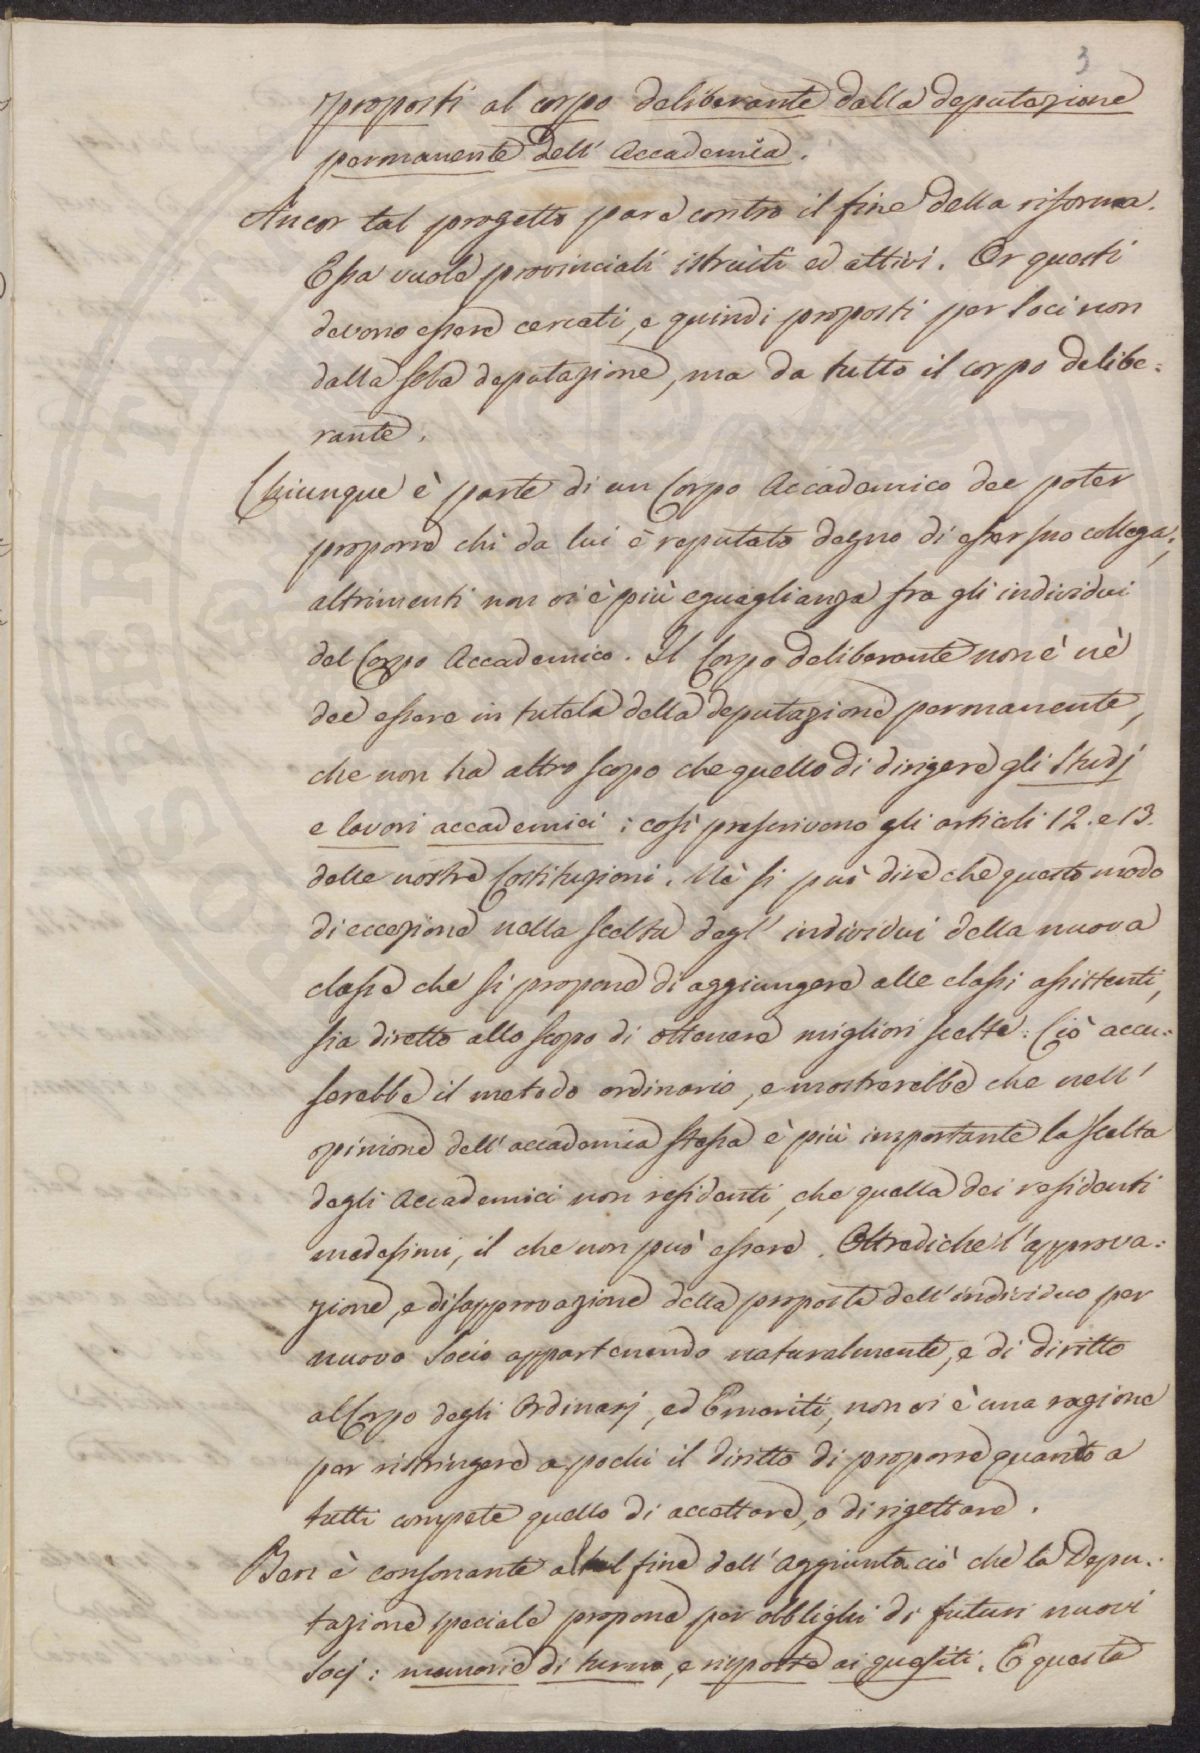 3
proposti al corpo deliberante dalla deputazione
permanente dell' Accademia.
Ancor tal progetto pare contro il fine della riforma.
Essa vuole provinciali istruiti ed attivi. Or questi
devono essere cercati, e quindi proposti per soci non
dalla sola deputazione, ma da tutto il corpo delibe:
rante.
Chiunque è parte di un Corpo Accademico dee poter
proporre chi da lui è reputato degno di esser suo collega;
altrimenti non vi è più eguaglianza fra gli individui
del Corpo Accademico. Il Corpo deliberante non è nè
dee essere in tutela della deputazione permanente,
che non ha altro scopo che quello di dirigere gli studj
e lavori accademici: così prescrivono gli articoli 12. e 13.
delle nostre Costituzioni. Nè si può dire che questo modo
di eccezione nella scelta degl' individui della nuova
classe che si propone di aggiungere alle classi assistenti,
sia diretto allo scopo di ottenere migliori scelte. Ciò accu:
serebbe il metodo ordinario, e mostrerebbe che nell'
opinione dell' accademia stessa è più importante la scelta
degli Accademici non residenti, che quella dei residenti
medesimi, il che non può essere. Oltrediché l' approva:
zione, e disapprovazione della proposta dell' individuo per
nuovo Socio appartenendo naturalmente, e di diritto
al Corpo degli Ordinarj, ed Emeriti, non vi è una ragione
per ristringere a pochi il diritto di proporre quanto a
tutti compete quello di accettare, o di rigettare.
Ben è consonante al fine dell' Aggiunta ciò che la Depu:
tazione speciale propone per obblighi di futuri nuovi
Socj: memorie di turno, e risposte ai quesiti. E questa